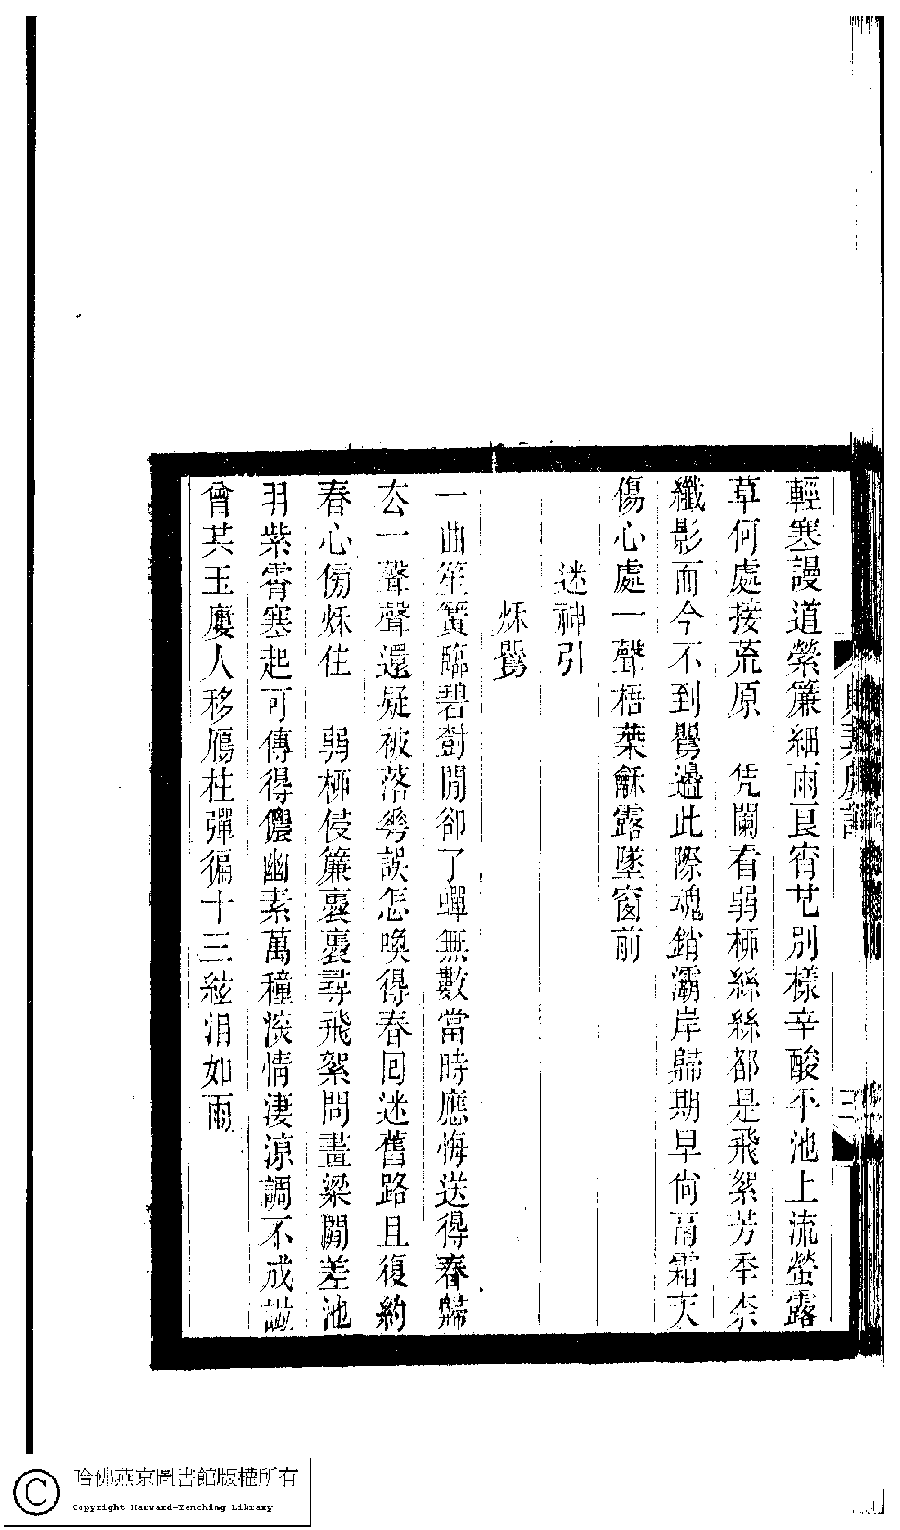 輕寒謾道縈簾細雨良宵艺別樣辛酸不池上流螢露
草何處接荒原　凭闌看弱桺絲絲都是飛絮芳季柰
纖影而今不到鬢邊此際魂銷灞岸歸期早尙鬲霜天
傷心處一聲梧葉龢露墜窗前
迷神引
秌鶯
一曲笙簧臨碧樹閒卻了蟬無數當時應悔送得春歸
厺一聲聲還疑被落花誤怎喚得春回迷舊路且復約
春心傍秌住　弱桺侵簾裛裛尋飛絮問畫梁閒差池
羽紫霄寒起可傳得儂幽素萬種淡情淒涼調不成譜
曾其玉慶人移鴈柱彈徧十三絃淚如雨
三
哈佛燕京圖書館版權所有
Copyright Harvard-Yenching Library